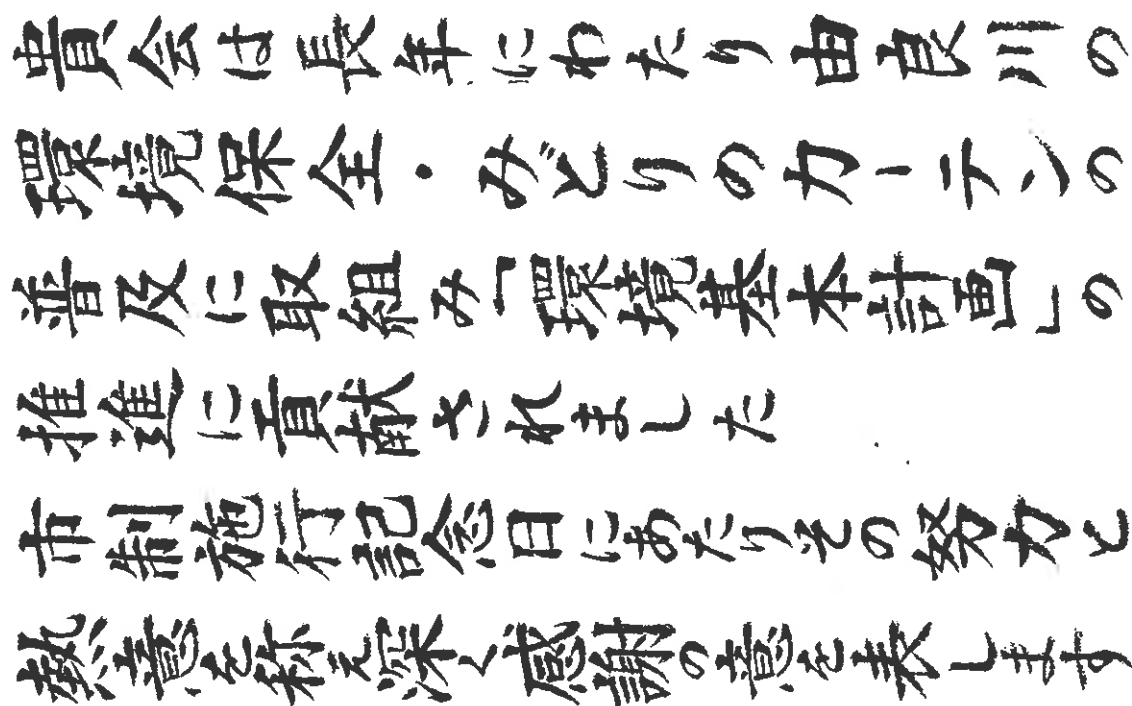 貴会は長年にわたり由良川の
環境保全・みどりのカーテンの
普及に取組み「環境基本計画」の
推進に貢献されました
市制施行記念日にあたりその努力と
熱意を称え深く感謝の意を表します